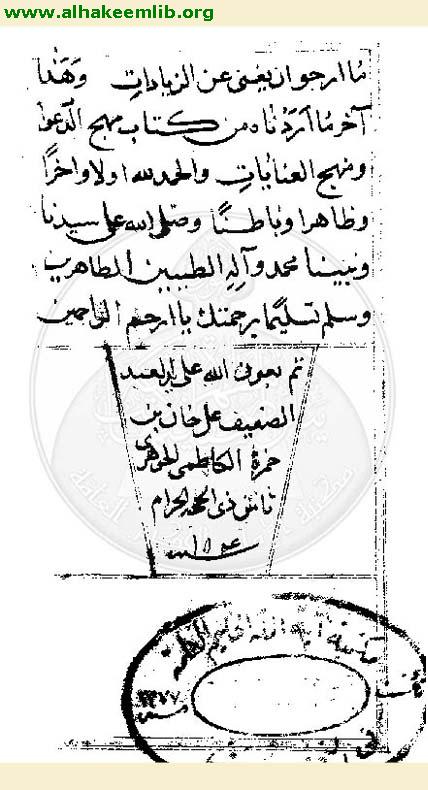 www.alhakeemlib.org
ما ارجو ان يغنى عن الزيادات وهذا
آخر ما اردناه من كتاب مهج الدعوا
ومنهج العنايات والحمد لله اولا واخرا
وظاهرا وباطنا وصلى الله على سيدنا
ونبينا محمد وآله الطيبين الطاهرين
وسلم تسليما برحمتك يا ارحم الراحمين
تم بعون الله على يد العبد
الضعيف على خان بن
حمزة الكاظمى
ذى الحجه الحرام
مكتبة آية الله الحكيم العامة
١٣٧٧